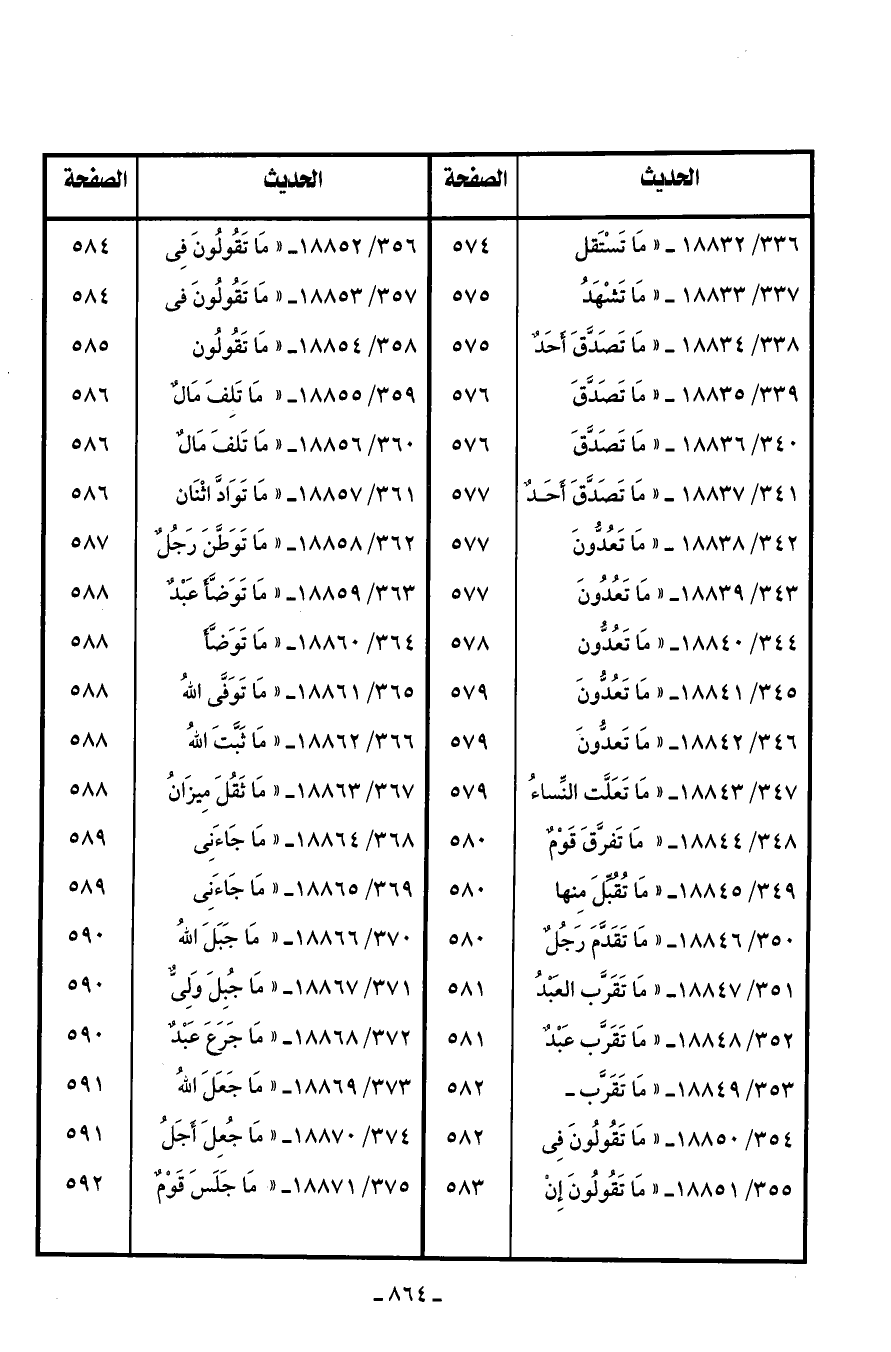 الحديث الصفحة الحديث الصفحة
٣٣٦/ ١٨٨٣٢ ـ « مَا تَسْتَقل ٥٧٤ ٣٥٦/ ١٨٨٥٢ـ « مَا تَقُولُونَ فِى ٥٨٤
٣٣٧/ ١٨٨٣٣ ـ « مَا تَشْهَدُ ٥٧٥ ٣٥٧/ ١٨٨٥٣ـ « مَا تَقُولُونَ فى ٥٨٤
٣٣٨/ ١٨٨٣٤ ـ « مَا تَصَدَّقَ أَحَدٌ ٥٧٥ ٣٥٨/ ١٨٨٥٤ـ « مَا تَقُولُون ٥٨٥
٣٣٩/ ١٨٨٣٥ ـ « مَا تَصَدَّقَ ٥٧٦ ٣٥٩/ ١٨٨٥٥ـ « مَا تَلِفَ مَالٌ ٥٨٦
٣٤٠/ ١٨٨٣٦ ـ « مَا تَصَدَّقَ ٥٧٦ ٣٦٠/ ١٨٨٥٦ـ « مَا تَلفَ مَالٌ ٥٨٦
٣٤١/ ١٨٨٣٧ ـ « مَا تَصَدَّقَ أَحَـدٌ ٥٧٧ ٣٦١/ ١٨٨٥٧ـ « مَا تَوَادَّ اثْنَان ٥٨٦
٣٤٢/ ١٨٨٣٨ ـ « مَا تَعُدُّونَ ٥٧٧ ٣٦٢/ ١٨٨٥٨ـ « مَا تَوَطَّنَ رَجُلٌ ٥٨٧
٣٤٣/ ١٨٨٣٩ـ « مَا تَعُدُّونَ ٥٧٧ ٣٦٣/ ١٨٨٥٩ـ « مَا تَوَضَّأَ عَبْدٌ ٥٨٨
٣٤٤/ ١٨٨٤٠ـ « مَا تَعُدُّون ٥٧٨ ٣٦٤/ ١٨٨٦٠ـ « مَا تَوَضَّأَ ٥٨٨
٣٤٥/ ١٨٨٤١ـ « مَا تَعُدُّونَ ٥٧٩ ٣٦٥/ ١٨٨٦١ـ « مَا تَوَفَّى اللهُ ٥٨٨
٣٤٦/ ١٨٨٤٢ـ « مَا تَعدُّونَ ٥٧٩ ٣٦٦/ ١٨٨٦٢ـ « مَا ثَبَّتَ اللهُ ٥٨٨
٣٤٧/ ١٨٨٤٣ـ « مَا تَعَلَّت النِّساءُ ٥٧٩ ٣٦٧/ ١٨٨٦٣ـ « مَا ثَقُلَ مِيزَانُ ٥٨٨
٣٤٨/ ١٨٨٤٤ـ « مَا تَفرَّقَ قَوْمٌ ٥٨٠ ٣٦٨/ ١٨٨٦٤ـ « مَا جَاءَنِى ٥٨٩
٣٤٩/ ١٨٨٤٥ـ « مَا تُقُبِّلَ مِنها ٥٨٠ ٣٦٩/ ١٨٨٦٥ـ « مَا جَاءَنِى ٥٨٩
٣٥٠/ ١٨٨٤٦ـ « مَا تَقَدَّمَ رَجُلٌ ٥٨٠ ٣٧٠/ ١٨٨٦٦ـ « مَا جَبَلَ اللهُ ٥٩٠
٣٥١/ ١٨٨٤٧ـ « مَا تَقَرَّب العَبْدُ ٥٨١ ٣٧١/ ١٨٨٦٧ـ « مَا جُبِلَ وَلِىٌّ ٥٩٠
٣٥٢/ ١٨٨٤٨ـ « مَا تَقَرَّب عَبْدٌ ٥٨١ ٣٧٢/ ١٨٨٦٨ـ « مَا جَرَعَ عَبْدٌ ٥٩٠
٣٥٣/ ١٨٨٤٩ـ « مَا تَقَرَّب ـ ٥٨٢ ٣٧٣/ ١٨٨٦٩ـ « مَا جَعَلَ اللهُ ٥٩١
٣٥٤/ ١٨٨٥٠ـ « مَا تَقُولُونَ فِى ٥٨٢ ٣٧٤/ ١٨٨٧٠ـ « مَا جُعِلَ أَجَلُ ٥٩١
٣٥٥/ ١٨٨٥١ـ « مَا تَقُولُونَ إِنْ ٥٨٣ ٣٧٥/ ١٨٨٧١ـ « مَا جَلَسَ قَوْمٌ ٥٩٢
ـ ٨٦٤ ـ